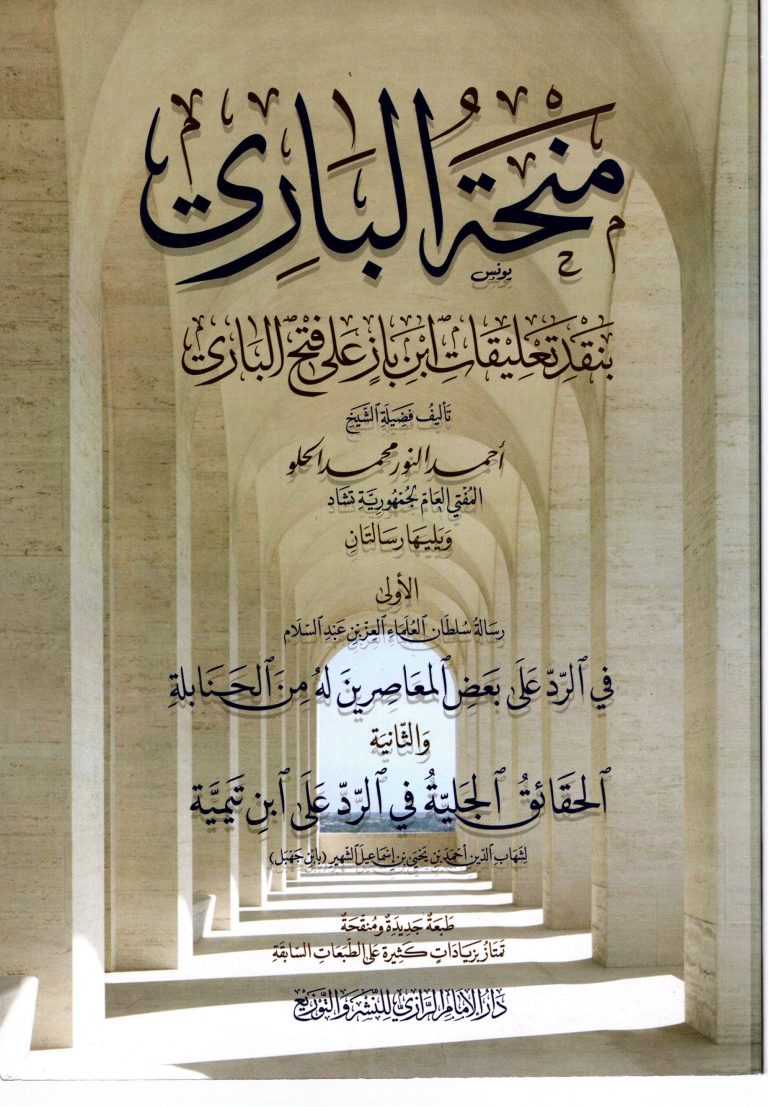 مِنْحَةُ الْبَارِي
يونس
بِنَقْدِ تَعْلِيقَاتِ ابْنِ بَازٍ عَلَى فَتْحِ الْبَارِي
تَأْلِيفُ فَضِيلَةِ الشَّيْخِ
أحمد النور محمد الحلو
المُفْتِي العَامّ لجُمْهُورِيَّةِ تشَاد
وَيَلِيهَا رِسَالتَانِ
الأولى
رِسَالةُ سُلطَان العُلَمَاءِ العِزّ بن عَبْدِ السَّلَام
في الرّدّ عَلَى بَعَضِ المعَاصِرينَ لهُ مِنَ الحَنَابلةِ
وَالثّانيَة
الحقائقُ الجَليّةُ في الرّدّ عَلَى ابنِ تَيميَّة
لِشهَابِ الدّين أحمَد بن يَحْيَى بن إسْمَاعِيل الشّهيرِ (بابْنِ جَهْبَل)
طَبعَةٌ جَدِيدَةٌ ومُنقّحَةٌ
تمتَازُ بزيَادَاتٍ كَثِيرة عَلى الطّبَعَاتِ السّابقَةِ
دَارُ الإمَام الرَّازي للنَّشر وَالتَّوزيع